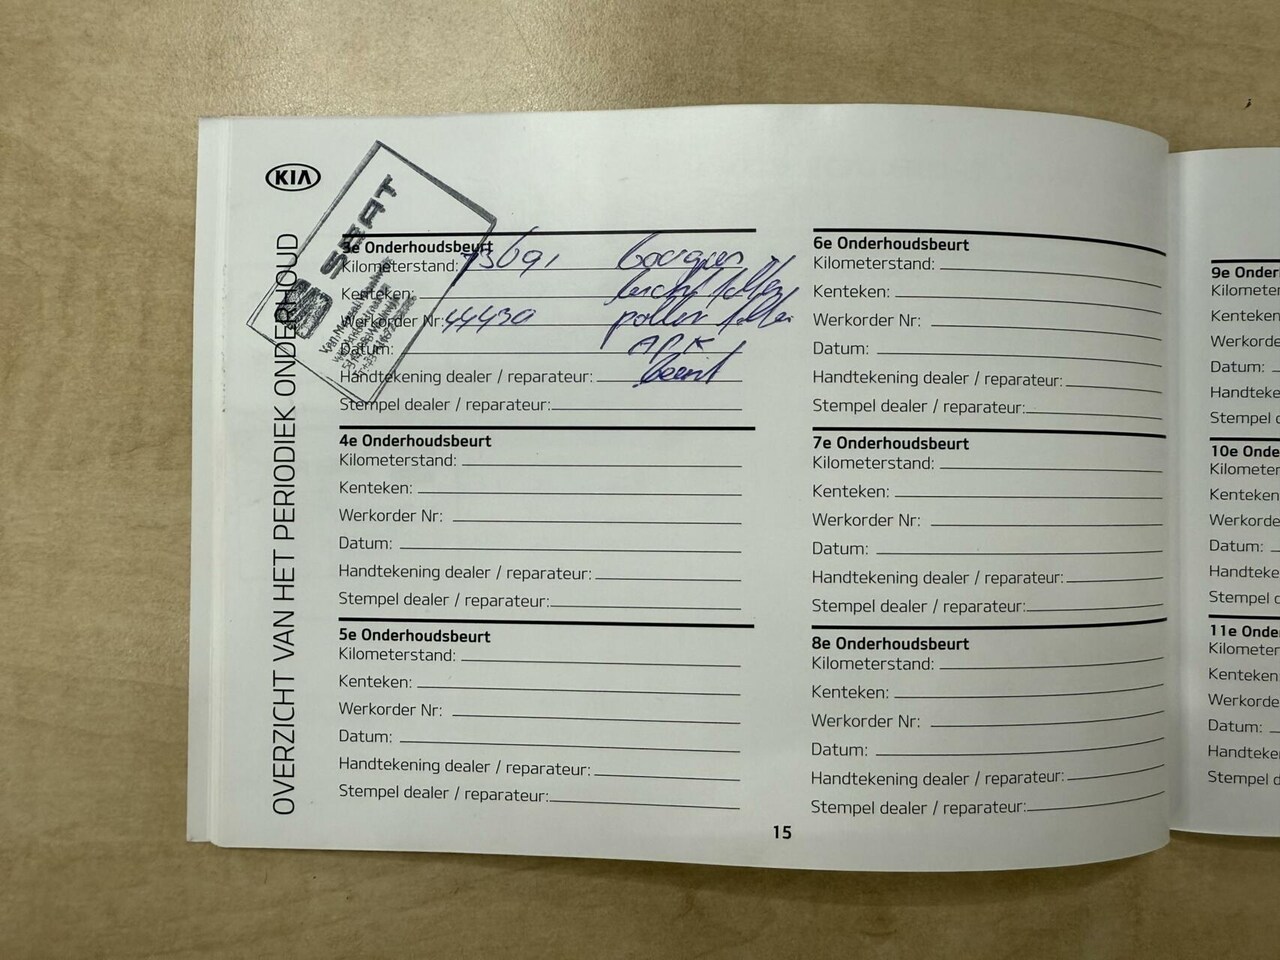 KIA
OVERZICHT VAN HET PERIODIEK ONDERHOUD
SEAT
3e Onderhoudsbeurt
Kilometerstand:
Kenteken:
Werkorder Nr: 44430
pollen filter
Datum:
APK
Handtekening dealer / reparateur:
Stempel dealer / reparateur:
4e Onderhoudsbeurt
Kilometerstand:
Kenteken:
Werkorder Nr:
Datum:
Handtekening dealer / reparateur:
Stempel dealer / reparateur:
5e Onderhoudsbeurt
Kilometerstand:
Kenteken:
Werkorder Nr:
Datum:
Handtekening dealer / reparateur:
Stempel dealer / reparateur:
6e Onderhoudsbeurt
Kilometerstand:
Kenteken:
Werkorder Nr:
Datum:
Handtekening dealer / reparateur:
Stempel dealer / reparateur:
7e Onderhoudsbeurt
Kilometerstand:
Kenteken:
Werkorder Nr:
Datum:
Handtekening dealer / reparateur:
Stempel dealer / reparateur:
8e Onderhoudsbeurt
Kilometerstand:
Kenteken:
Werkorder Nr:
Datum:
Handtekening dealer / reparateur:
Stempel dealer / reparateur:
15
9e Onder
Kilometer
Kenteken
Werkorde
Datum:
Handteke
Stempel d
10e Onde
Kilometer
Kenteken
Werkorde
Datum:
Handteke
Stempel d
11e Onde
Kilometer
Kenteken
Werkorde
Datum:
Handteke
Stempel d